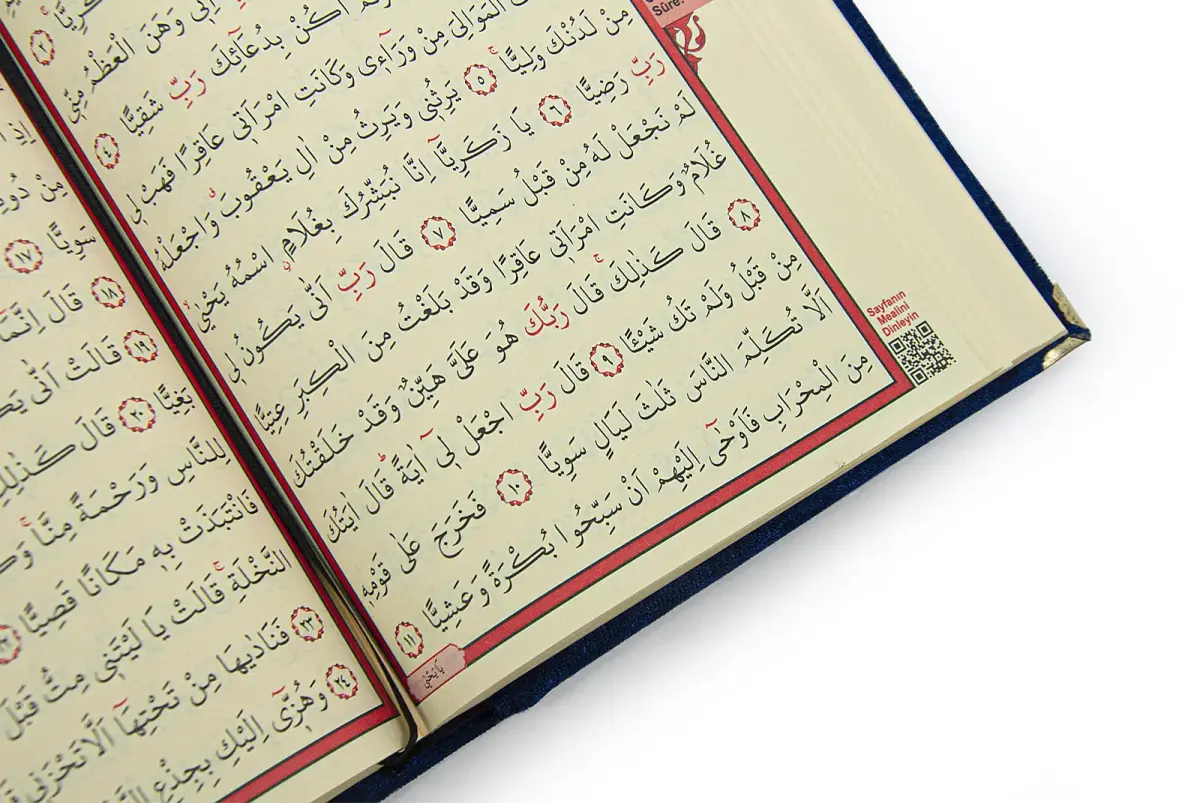 Sûre:
٢
وَهَنَ الْعَظْمُ مِنّٖى
اَكُنْ بِدُعَٓائِكَ رَبِّ شَقِيًّا ٤
الْمَوَالِيَ مِنْ وَرَٓاءٖى وَكَانَتِ امْرَاَتٖى عَاقِرًا فَهَبْ لٖى
مِنْ لَدُنْكَ وَلِيًّا ٥ يَرِثُنٖى وَيَرِثُ مِنْ اٰلِ يَعْقُوبَ وَاجْعَلْهُ
رَبِّ رَضِيًّا ٦ يَا زَكَرِيَّٓا اِنَّا نُبَشِّرُكَ بِغُلَامٍ اسْمُهُ يَحْيٰى
لَمْ نَجْعَلْ لَهُ مِنْ قَبْلُ سَمِيًّا ٧ قَالَ رَبِّ اَنّٰى يَكُونُ لٖى
غُلَامٌ وَكَانَتِ امْرَاَتٖى عَاقِرًا وَقَدْ بَلَغْتُ مِنَ الْكِبَرِ عِتِيًّا
٨ قَالَ كَذٰلِكَ قَالَ رَبُّكَ هُوَ عَلَيَّ هَيِّنٌ وَقَدْ خَلَقْتُكَ
مِنْ قَبْلُ وَلَمْ تَكُ شَيْـًٔا ٩ قَالَ رَبِّ اجْعَلْ لٖٓى اٰيَةً قَالَ اٰيَتُكَ
اَلَّا تُكَلِّمَ النَّاسَ ثَلٰثَ لَيَالٍ سَوِيًّا ١٠ فَخَرَجَ عَلٰى قَوْمِهٖ
مِنَ الْمِحْرَابِ فَاَوْحٰٓى اِلَيْهِمْ اَنْ سَبِّحُوا بُكْرَةً وَعَشِيًّا ١١
يَا يَحْيٰى
Sayfanın
Mealini
Dinleyin
مِنْ
سَوِيًّا ١٧
١٨ قَالَ اِنَّمَا
١٩ قَالَتْ اَنّٰى
بَغِيًّا ٢٠ قَالَ كَذٰلِكِ
لِلنَّاسِ وَرَحْمَةً مِنَّا
فَانْتَبَذَتْ بِهٖ مَكَانًا قَصِيًّا
النَّخْلَةِ قَالَتْ يَا لَيْتَنٖى مِتُّ قَبْلَ
٢٣ فَنَادٰيهَا مِنْ تَحْتِهَٓا اَلَّا تَحْزَنٖى
٢٤ وَهُزّٖٓى اِلَيْكِ بِجِذْعِ